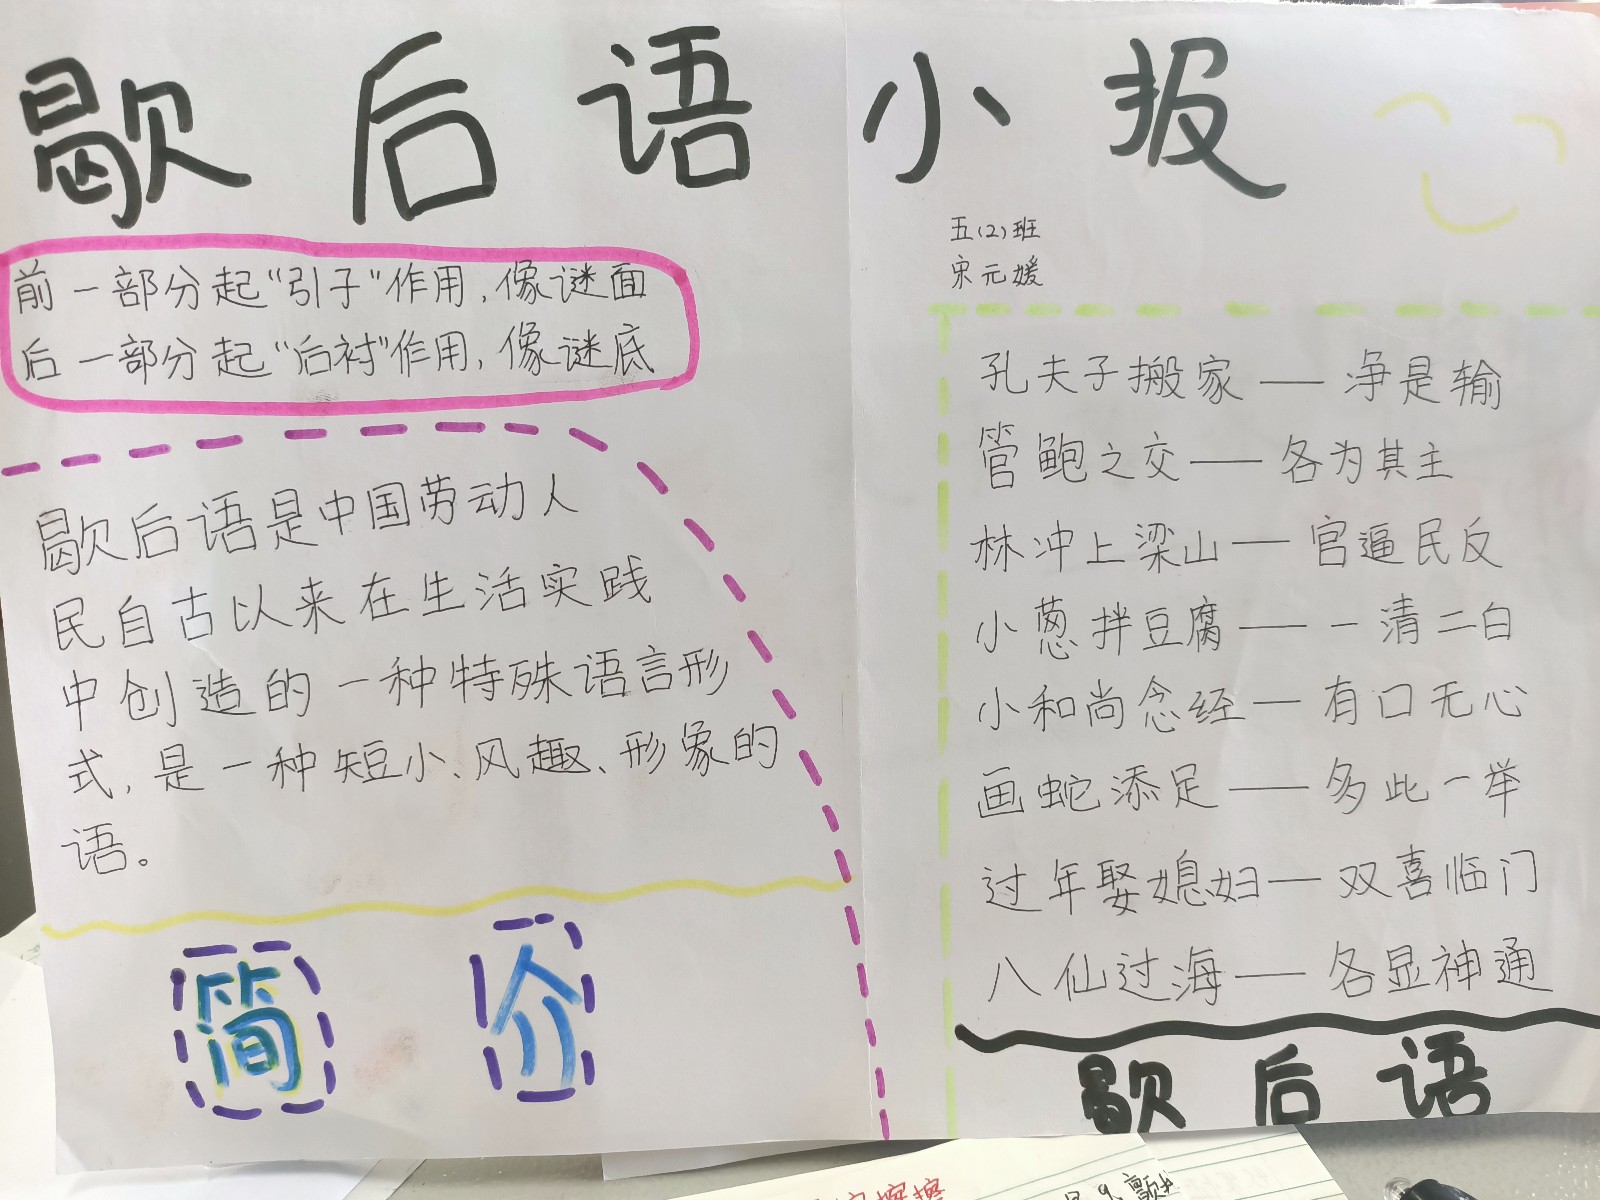 歇后语小报
五(2)班
宋元媛
前一部分起“引子”作用,像谜面
后一部分起“后衬”作用,像谜底
歇后语是中国劳动人
民自古以来在生活实践
中创造的一种特殊语言形
式,是一种短小、风趣、形象的
语。
简 介
孔夫子搬家——净是输
管鲍之交——各为其主
林冲上梁山——官逼民反
小葱拌豆腐——一清二白
小和尚念经——有口无心
画蛇添足——多此一举
过年娶媳妇——双喜临门
八仙过海——各显神通
歇后语